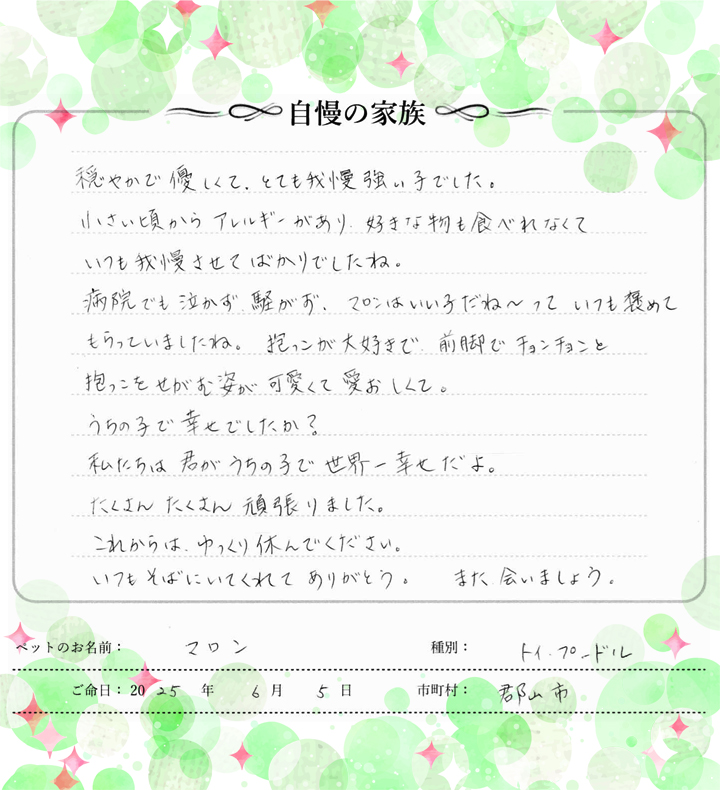 自慢の家族
穏やかで優しくて、とても我慢強い子でした。
小さい頃からアレルギーがあり、好きな物も食べれなくて
いつも我慢させてばかりでしたね。
病院でも泣かず、騒がず、マロンはいい子だね〜っていつも褒めて
もらっていましたね。抱っこが大好きで、前脚でチョンチョンと
抱っこをせがむ姿が可愛くて愛おしくて。
うちの子で幸せでしたか?
私たちは君がうちの子で世界一幸せだよ。
たくさんたくさん頑張りました。
これからは、ゆっくり休んでください。
いつもそばにいてくれてありがとう。 また会いましょう。
ペットのお名前: マロン 種別: トイ・プードル
ご命日: 2025年 6月 5日 市町村: 郡山市